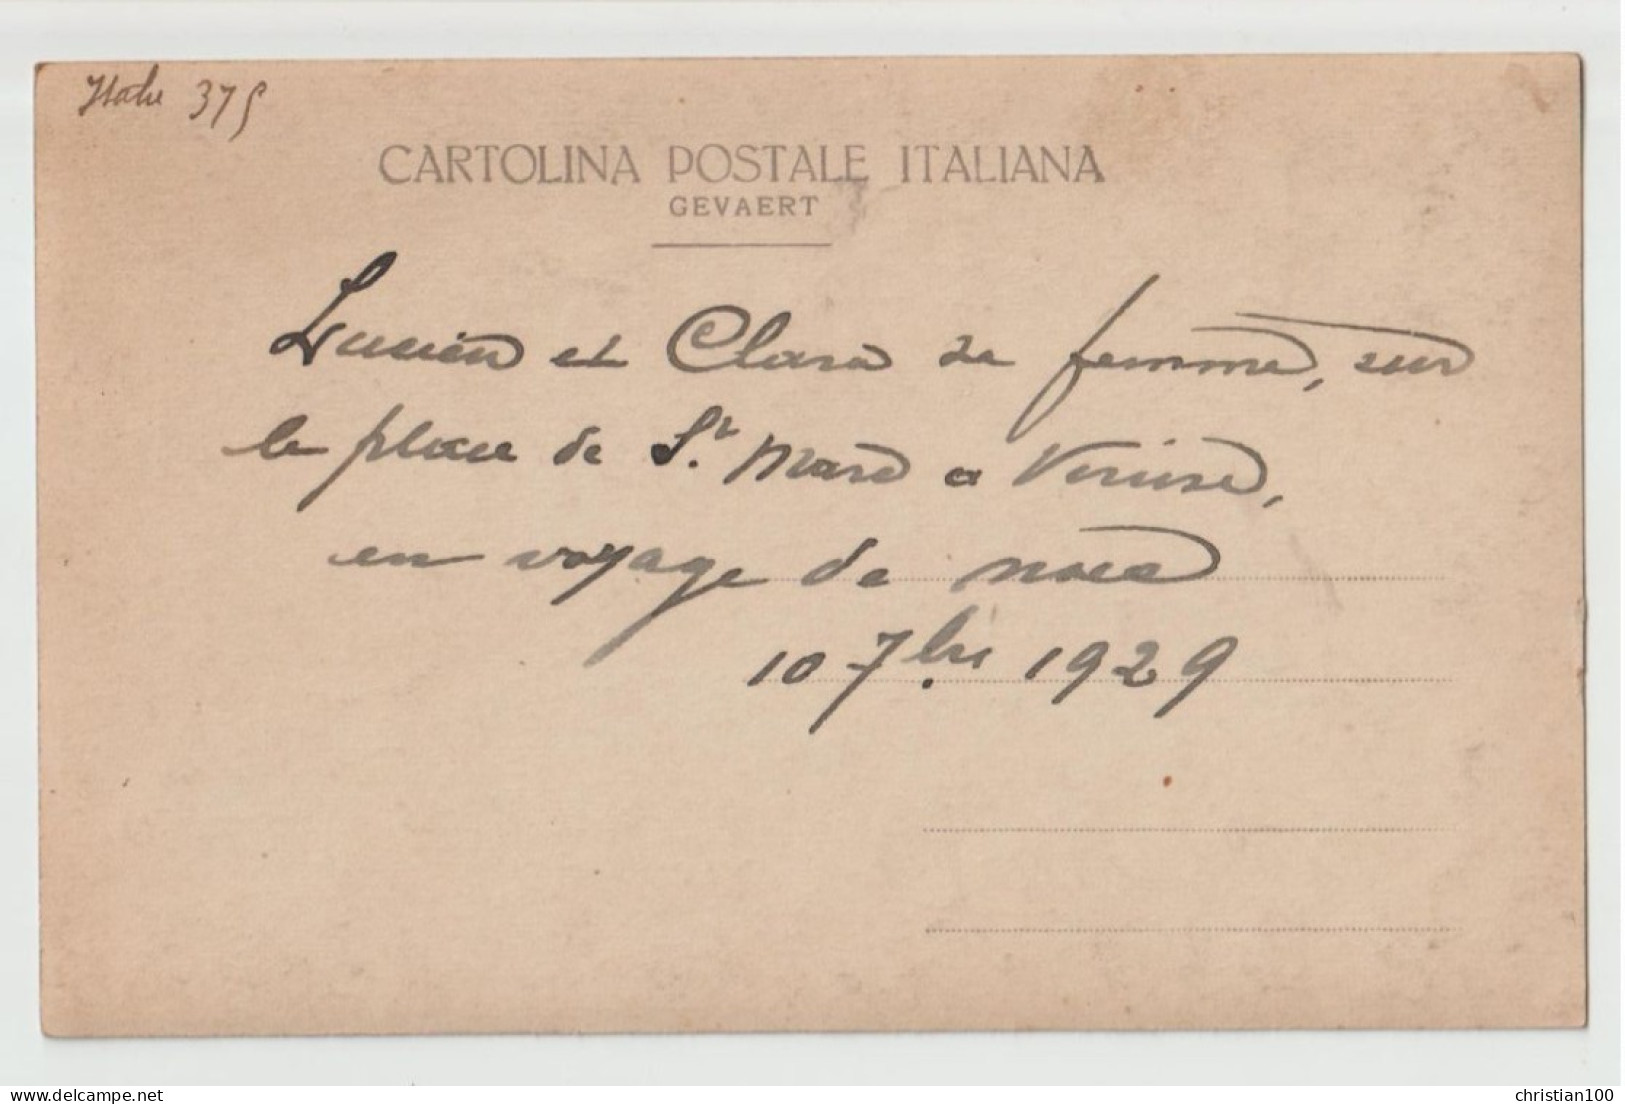 Italie 375
CARTOLINA POSTALE ITALIANA
GEVAERT
Lucien et Clara sa femme, sur
la place de St. Marc a Venise,
en voyage de noces
10 7bre 1929
delcampe.net
christian100